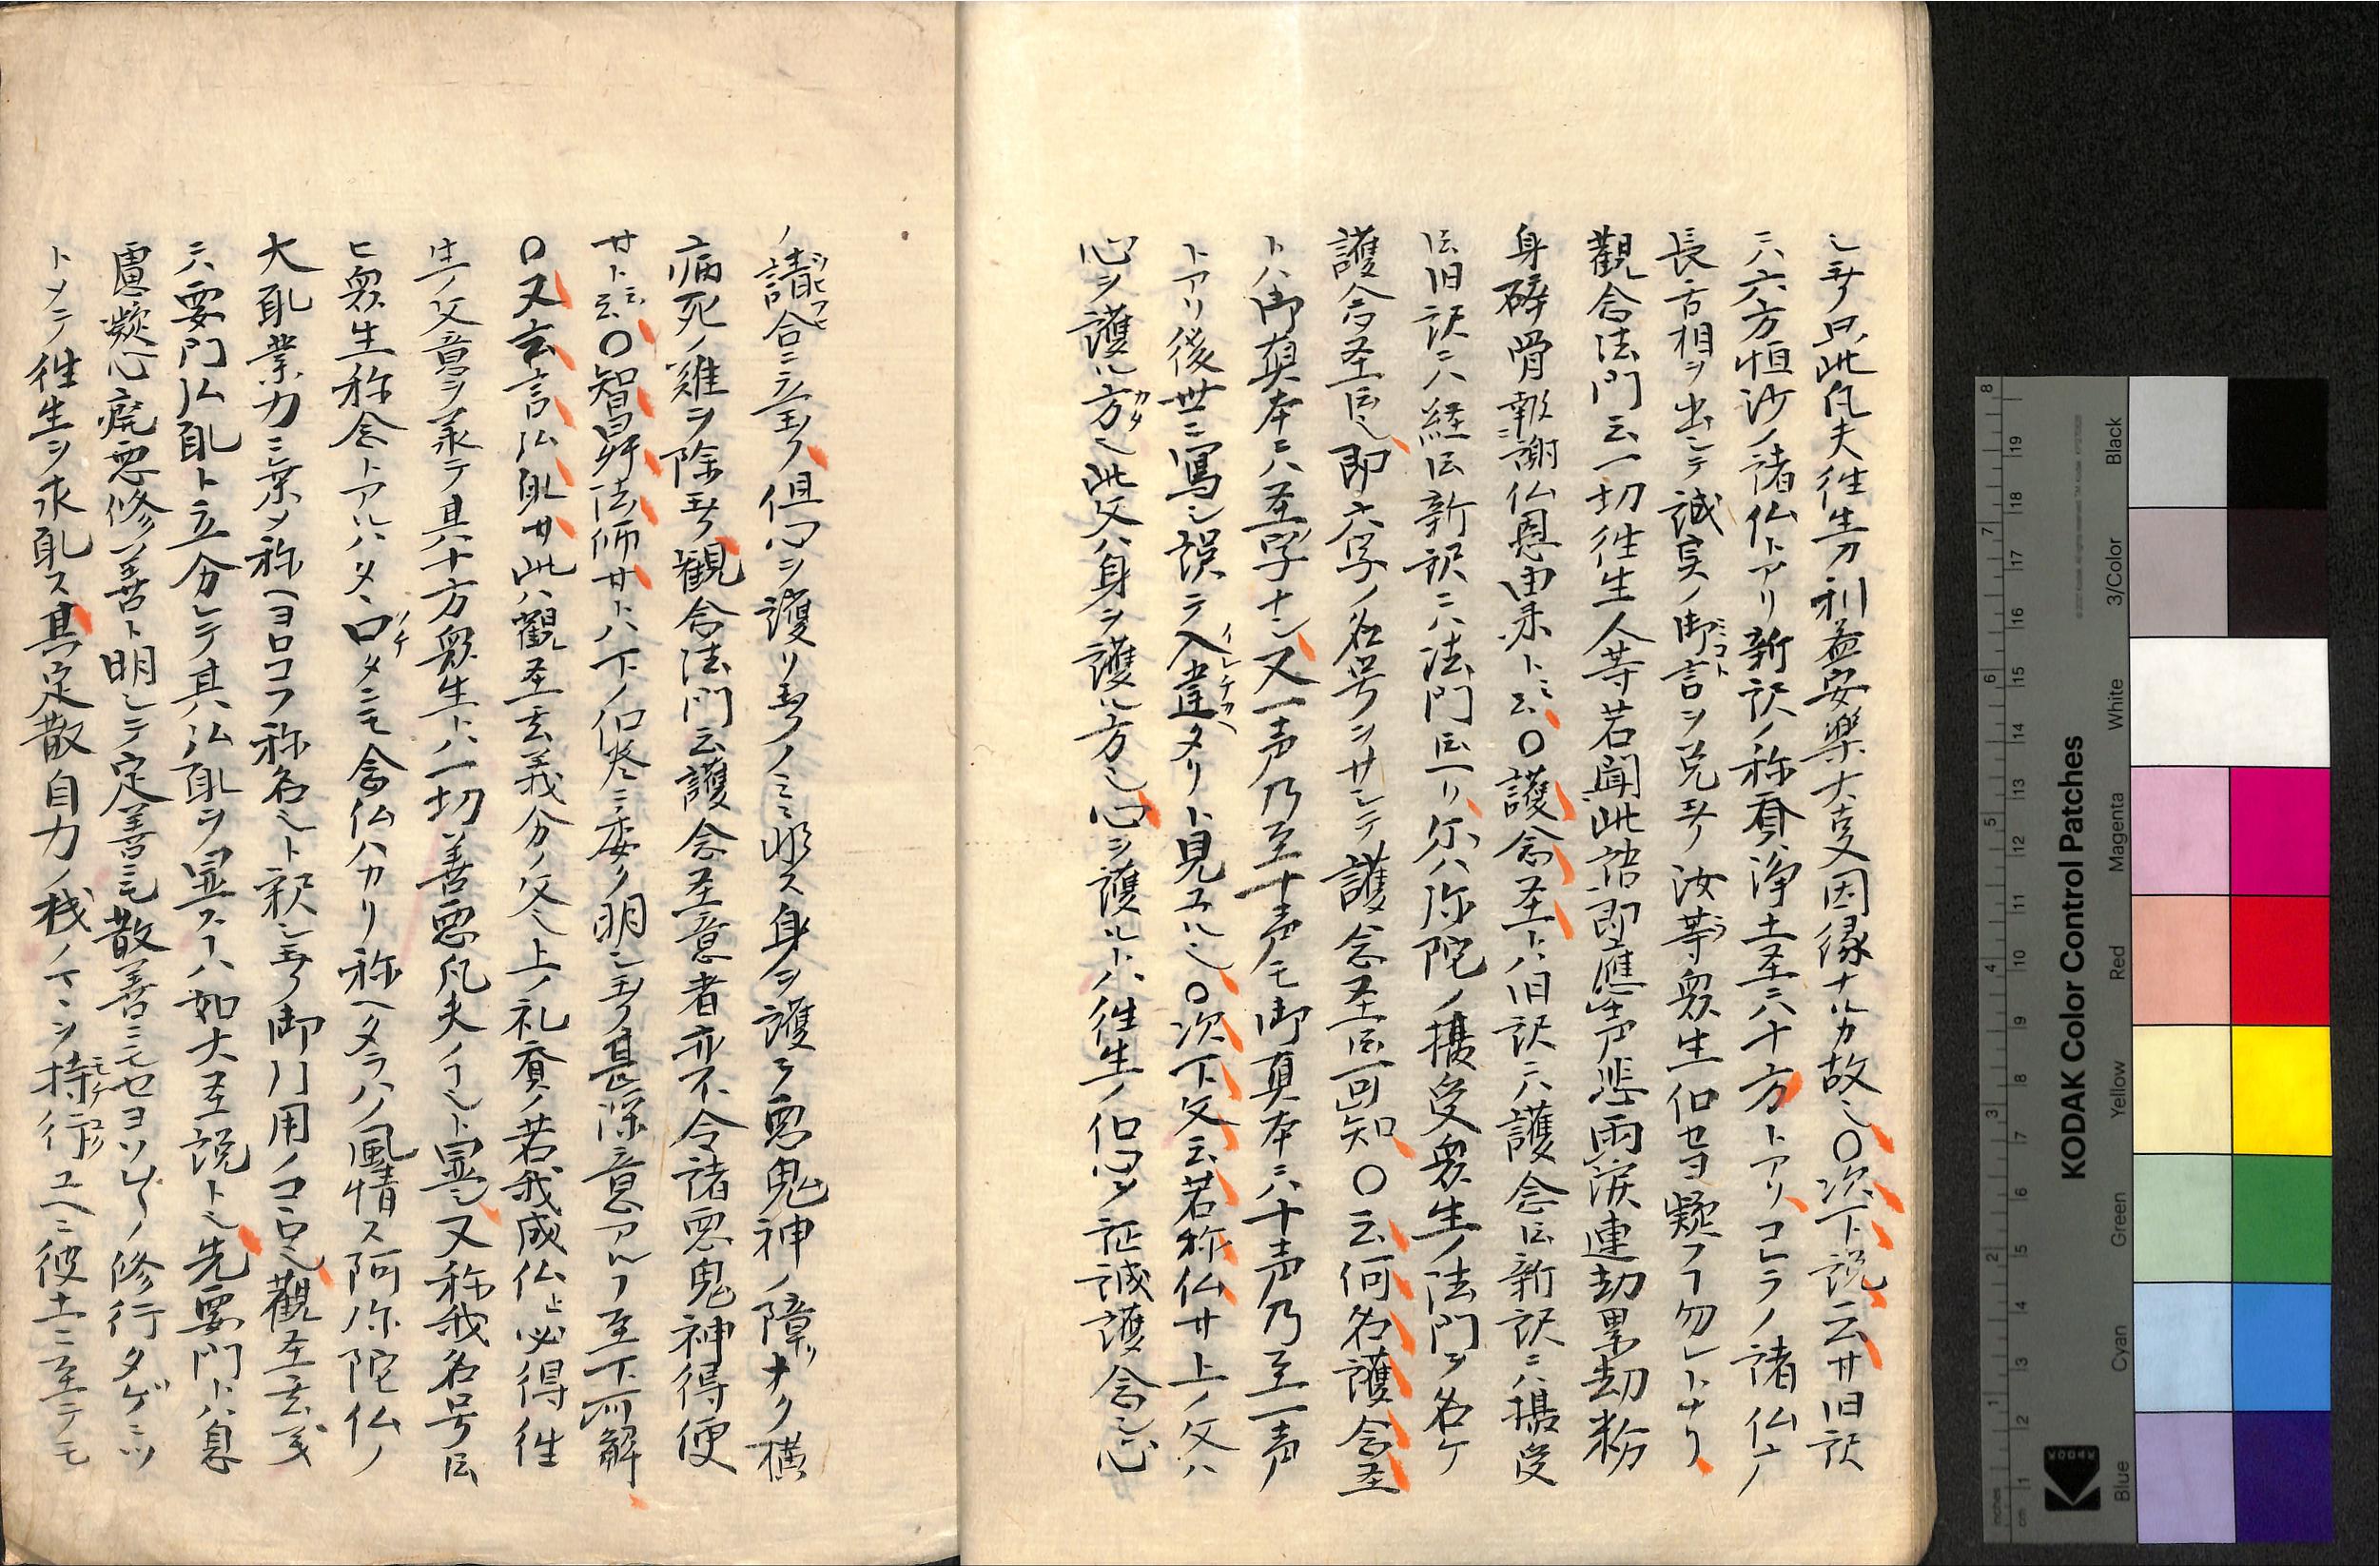 シ玉フ只此凡夫往生ノ利益安楽大事因縁ナルカ故也〇次下説云廿旧訳
ニハ六方恒沙ノ諸仏トアリ新訳ノ称讃浄土圣ニハ十方トアリコレラノ諸仏ノ
長舌相ヲ出シテ誠実ノ御言ヲ説玉フ汝等衆生信セヨ疑フコト勿レトナリ
観念法門云一切往生人等若聞此語即應声悲雨涙連劫累劫粉
身碎骨報謝仏恩由来ト云云〇護念圣トハ旧訳ニハ護念ト云新訳ニハ摂受
ト云旧訳ニハ経ト云新訳ニハ法門ト云リ尓ハ弥陀ノ摂受衆生ノ法門ヲ名ケ
護念圣ト云也即六字ノ名号ヲサシテ護念圣ト云可知〇云何名護念圣
トハ御真本ニハ圣字ナシ又一声乃至十声モ御真本ニハ十声乃至一声
トアリ後世ニ寫シ誤テ入違タリト見ユル也〇次下文云若称仏廿上ノ文ハ
心ヲ護ル方也此文ハ身ヲ護ル方也心ヲ護ルトハ往生ノ信心ヲ証誠護念シ心
ノ請合ニ立玉フ但心ヲ護リ玉フノミニ非ス身ヲ護ラ悪鬼神ノ障リナク横
病死ノ難ヲ除玉フ觀念法門云護念圣意者亦不令諸悪鬼神得便
廿ト云云〇智昇法師廿トハ下ノ信巻ニ委ク明シ玉フ甚深意アルフ至下可解
〇又云言弘願廿此ハ觀圣玄義分ノ文也上ノ礼賛ノ若我成仏ト必得往
生ノ文意ヲ承テ其十方衆生トハ一切善悪凡夫ノコト也ト霊シ又称我名号ト云
ヒ衆生称念トアルハタヽ口タニモ念仏ハカリ称ヘタラハノ風情ス阿弥陀仏ノ
大願業力ニ乗メ称ヘヨロコフ称名也ト釈シ玉フ御引用ノココロ也觀圣玄義
ニハ要門弘願ト立分レテ其弘願ヲ霊フコトハ如大圣説ト也先要門トハ息
慮凝心廃悪修善ト明シテ定善ニモ散善ニモセヨソレ〱ノ修行タゲミツ
トメテ往生ヲ求願ス其定散自力ノ我ノマヽヲ持行ユヘニ彼土ニ至テモ